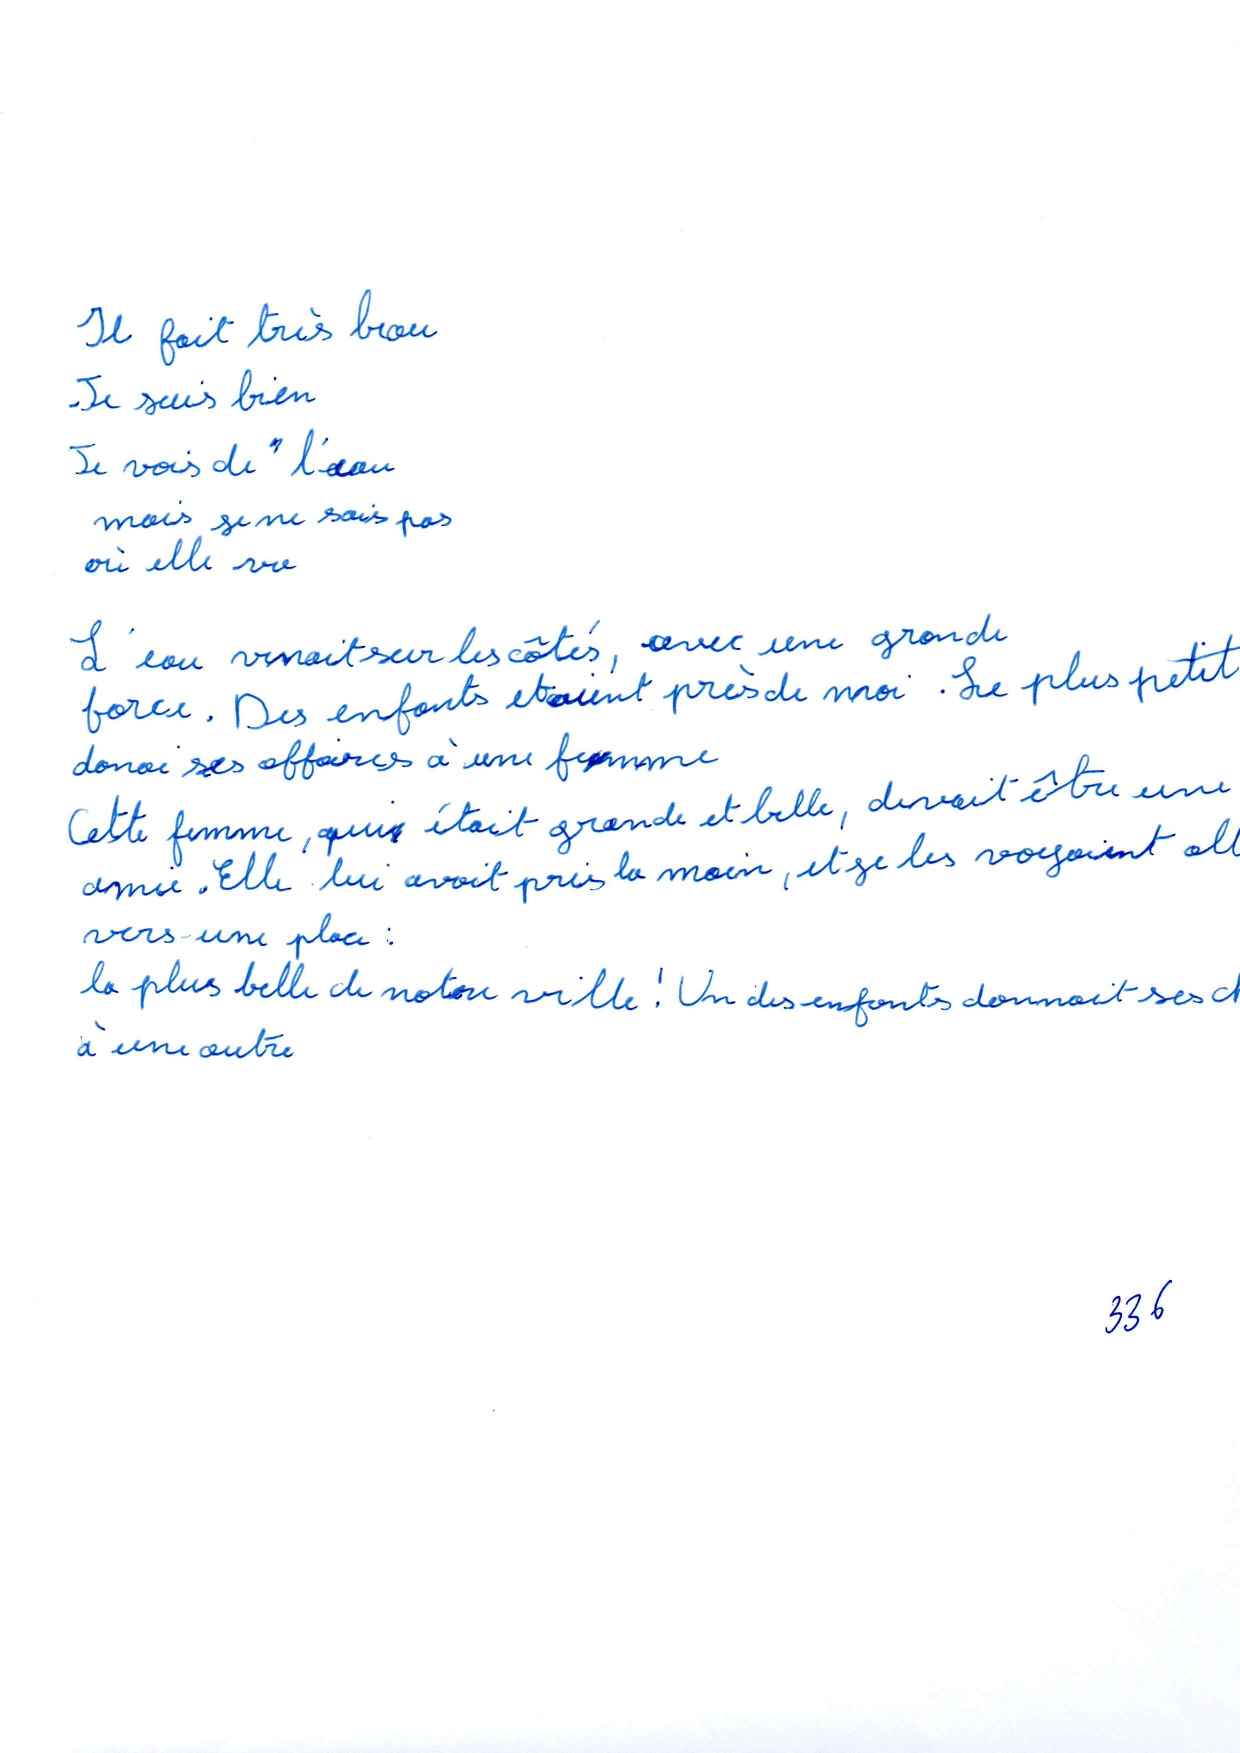 Il fait très beau
Je suis bien
Je vois de l'eau
mais je ne sais pas
où elle va
L'eau venait sur les côtés, avec une grande
force. Des enfants etaient près de moi. Le plus petit
donai ses affaires à une femme
Cette femme, qui était grande et belle, devait être une
amie. Elle lui avait pris la main, et je les voyaient all
vers une place :
la plus belle de notre ville ! Un des enfants donnait ses ch
à une autre
336